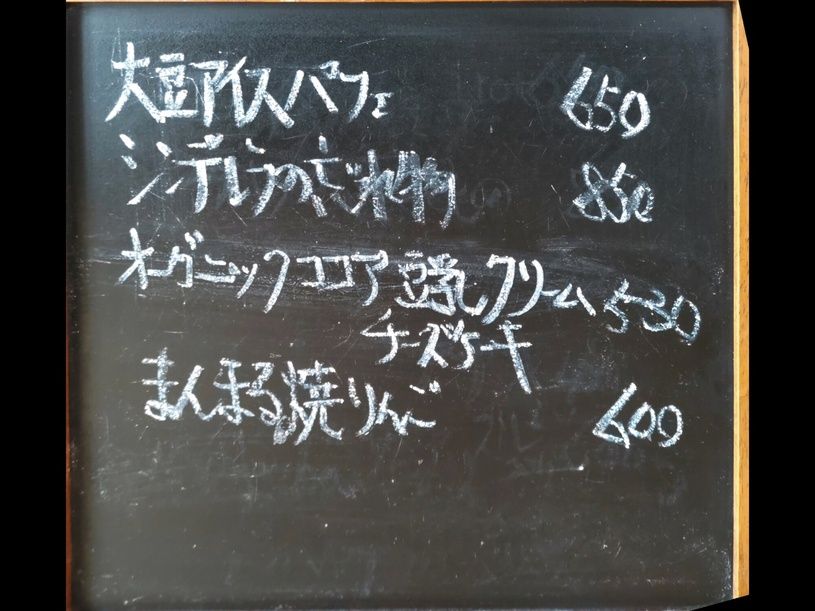 大豆アイスパフェ 650
シンデレラの忘れ物 850
オーガニックココア豆乳クリーム 530
チーズケーキ
まんまる焼りんご 600